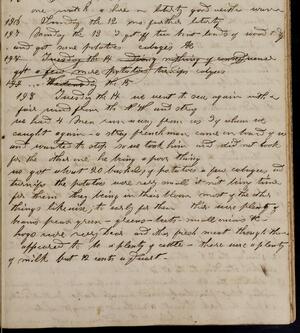 one with a hare on liberty good neither
196 Sunday the 12 no further liberty
197 Monday the 13 I got off two boat loads of wood
and got some potatoes cabages &c
198 Tuesday the 14 doing nothing of consequence
got a few more potatoes turnips cabges
198 Tuesday the 14 we went to sea again with a
fair wind from the and stray
we had 4 men run away from us 3 of whom we
caught again a stray french man came on board of us
and wanted to stop so we took him and did not look
for the other one he being a poor thing
we got about 20 bushels of potatoes a few cabages and
turnips the potatoes were very small it not being time
for them they being in their bloom most of the other
things likewise, to early for them there were plenty of
beans peas green greens beets mellonins &c
hogs were very dear and this fresh meat though there
appeared to be a plenty of cattle there were a plenty
of milk but 12 cents a Quart.